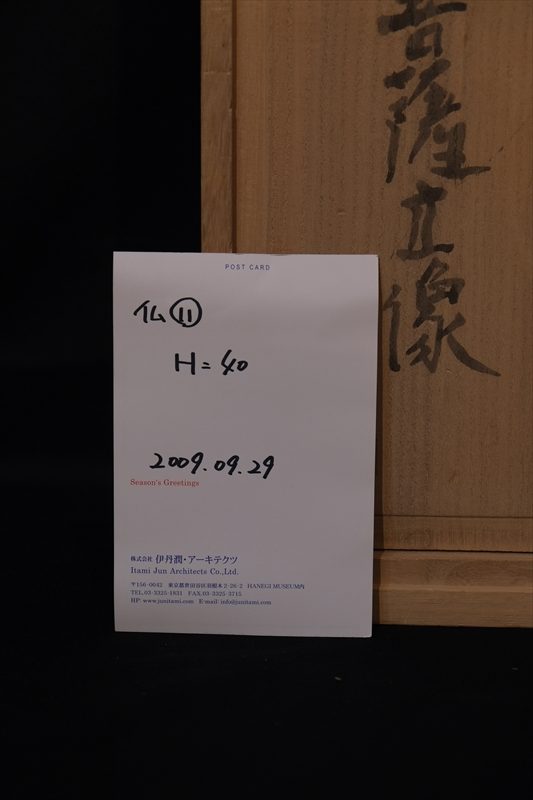 菩薩立像
POST CARD
仏⑪
H=40
2009.09.29
Season's Greetings
株式会社 伊丹潤・アーキテクツ
Itami Jun Architects Co.,Ltd.
〒156-0042 東京都世田谷区羽根木2-26-2 HANEGI MUSEUM内
TEL.03-3325-1831 FAX.03-3325-3715
HP: www.junitami.com E-mail: info@junitami.com